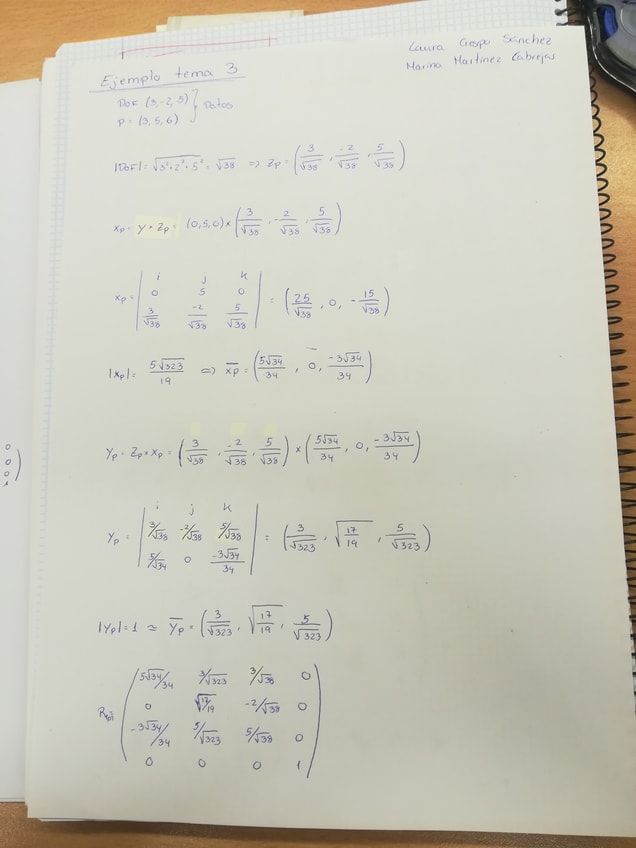 Laura Crespo Sánchez
Marina Martínez Cabrejas
Ejemplo tema 3
DOF (3,-2,5) } Datos
P = (3, 5, 6)
|DOF| = √3²+2²+5² = √38 => Zp = (3/√38, -2/√38, 5/√38)
Xp = y × Zp = (0,5,0) × (3/√38, -2/√38, 5/√38)
i j k
Xp = | 0 5 0 | = (25/√38, 0, -15/√38)
3/√38 -2/√38 5/√38
|Xp| = 5√323/19 => Xp = (5√34/34, 0, -3√34/34)
Yp = Zp × Xp = (3/√38, -2/√38, 5/√38) × (5√34/34, 0, -3√34/34)
i j k
Yp = | 3/√38 -2/√38 5/√38 | = (3/√323, √17/19, 5/√323)
5/√34 0 -3√34/34
|Yp| = 1 => Yp = (3/√323, √17/19, 5/√323)
5√34/34 3/√323 3/√38 0
0 √17/19 -2/√38 0
-3√34/34 5/√323 5/√38 0
0 0 0 1
0
0
0
1